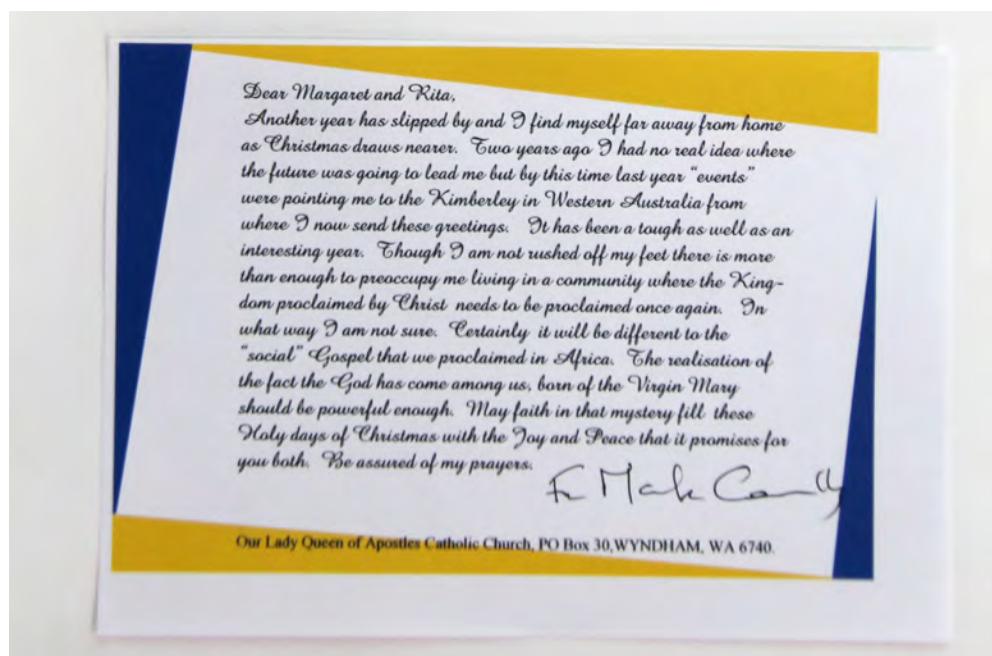 Dear Margaret and Rita,
Another year has slipped by and I find myself far away from home
as Christmas draws nearer. Two years ago I had no real idea where
the future was going to lead me but by this time last year "events"
were pointing me to the Kimberley in Western Australia from
where I now send these greetings. It has been a tough as well as an
interesting year. Though I am not rushed off my feet there is more
than enough to preoccupy me living in a community where the King-
dom proclaimed by Christ needs to be proclaimed once again. In
what way I am not sure. Certainly it will be different to the
"social" Gospel that we proclaimed in Africa. The realisation of
the fact the God has come among us, born of the Virgin Mary
should be powerful enough. May faith in that mystery fill these
Holy days of Christmas with the Joy and Peace that it promises for
you both. Be assured of my prayers.
Fr Mark
Our Lady Queen of Apostles Catholic Church, PO Box 30,WYNDHAM, WA 6740.